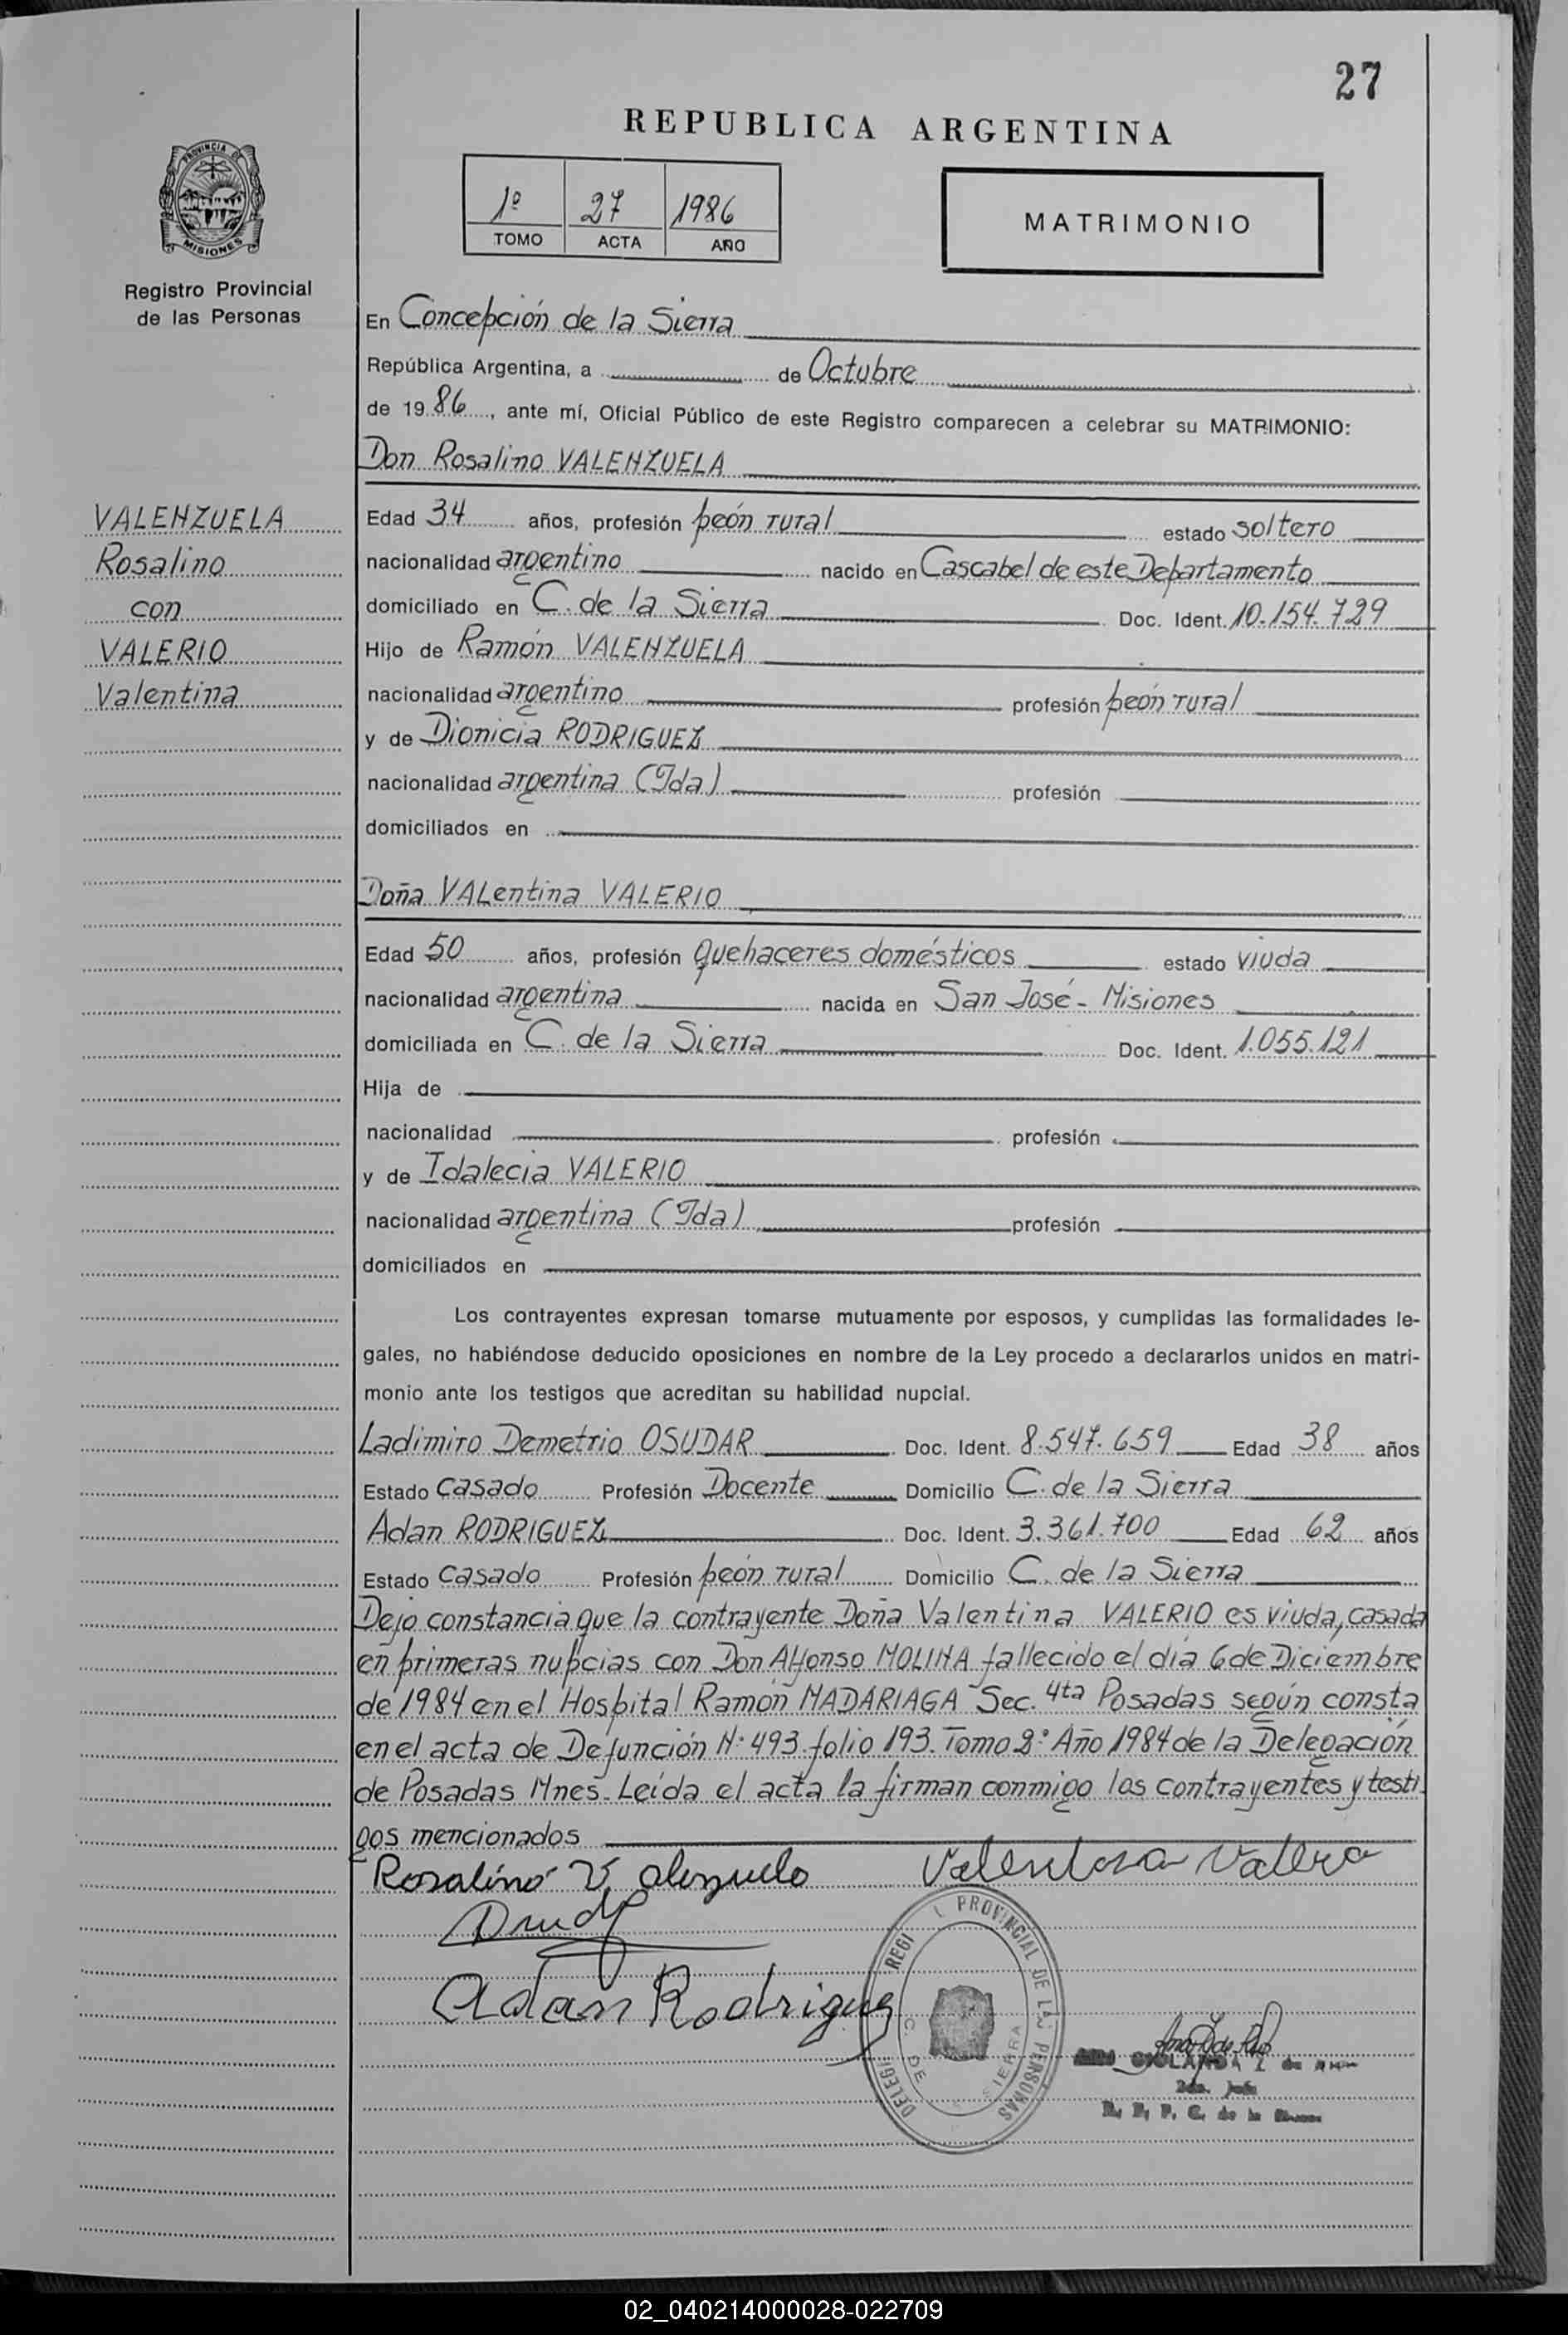 27
REPUBLICA ARGENTINA
PROVINCIA DE
MISIONES
Registro Provincial
de las Personas
1º 27 1986
TOMO ACTA AÑO
MATRIMONIO
En Concepción de la Sierra
República Argentina, a de Octubre
de 1986, ante mí, Oficial Público de este Registro comparecen a celebrar su MATRIMONIO:
Don Rosalino VALENZUELA
VALENZUELA
Rosalino
con
VALERIO
Valentina
Edad 34 años, profesión peón rural estado soltero
nacionalidad argentino nacido en Cascabel de este Departamento
domiciliado en C. de la Sierra Doc. Ident. 10.154.729
Hijo de Ramón VALENZUELA
nacionalidad argentino profesión peón rural
y de Dionicia RODRIGUEZ
nacionalidad argentina (Fda) profesión
domiciliados en
Doña VALentina VALERIO
Edad 50 años, profesión Quehaceres domésticos estado viuda
nacionalidad argentina nacida en San José - Misiones
domiciliada en C. de la Sierra Doc. Ident. 1.055.121
Hija de
nacionalidad profesión
y de Idalecia VALERIO
nacionalidad argentina (Fda) profesión
domiciliados en
Los contrayentes expresan tomarse mutuamente por esposos, y cumplidas las formalidades le-
gales, no habiéndose deducido oposiciones en nombre de la Ley procedo a declararlos unidos en matri-
monio ante los testigos que acreditan su habilidad nupcial.
Ladimiro Demetrio OSUDAR Doc. Ident. 8.547.659 Edad 38 años
Estado casado Profesión Docente Domicilio C. de la Sierra
Adan RODRIGUEZ Doc. Ident. 3.361.700 Edad 62 años
Estado casado Profesión peón rural Domicilio C. de la Sierra
Dejo constancia que la contrayente Doña Valentina VALERIO es viuda, casada
en primeras nupcias con Don Alfonso MOLINA fallecido el día 6 de Diciembre
de 1984 en el Hospital Ramón MADARIAGA Sec. 4ta Posadas según consta
en el acta de Defunción N° 493 folio 193. Tomo 2° Año 1984 de la Delegación
de Posadas Mnes. Leída el acta la firman conmigo los contrayentes y testi
gos mencionados
Rosalino Valenzuela Valentina Valerio
Adan Rodriguez
REGI L PROVINCIAL DE LAS PERSONAS
DELEG C. DE SIERRA
02_040214000028-022709